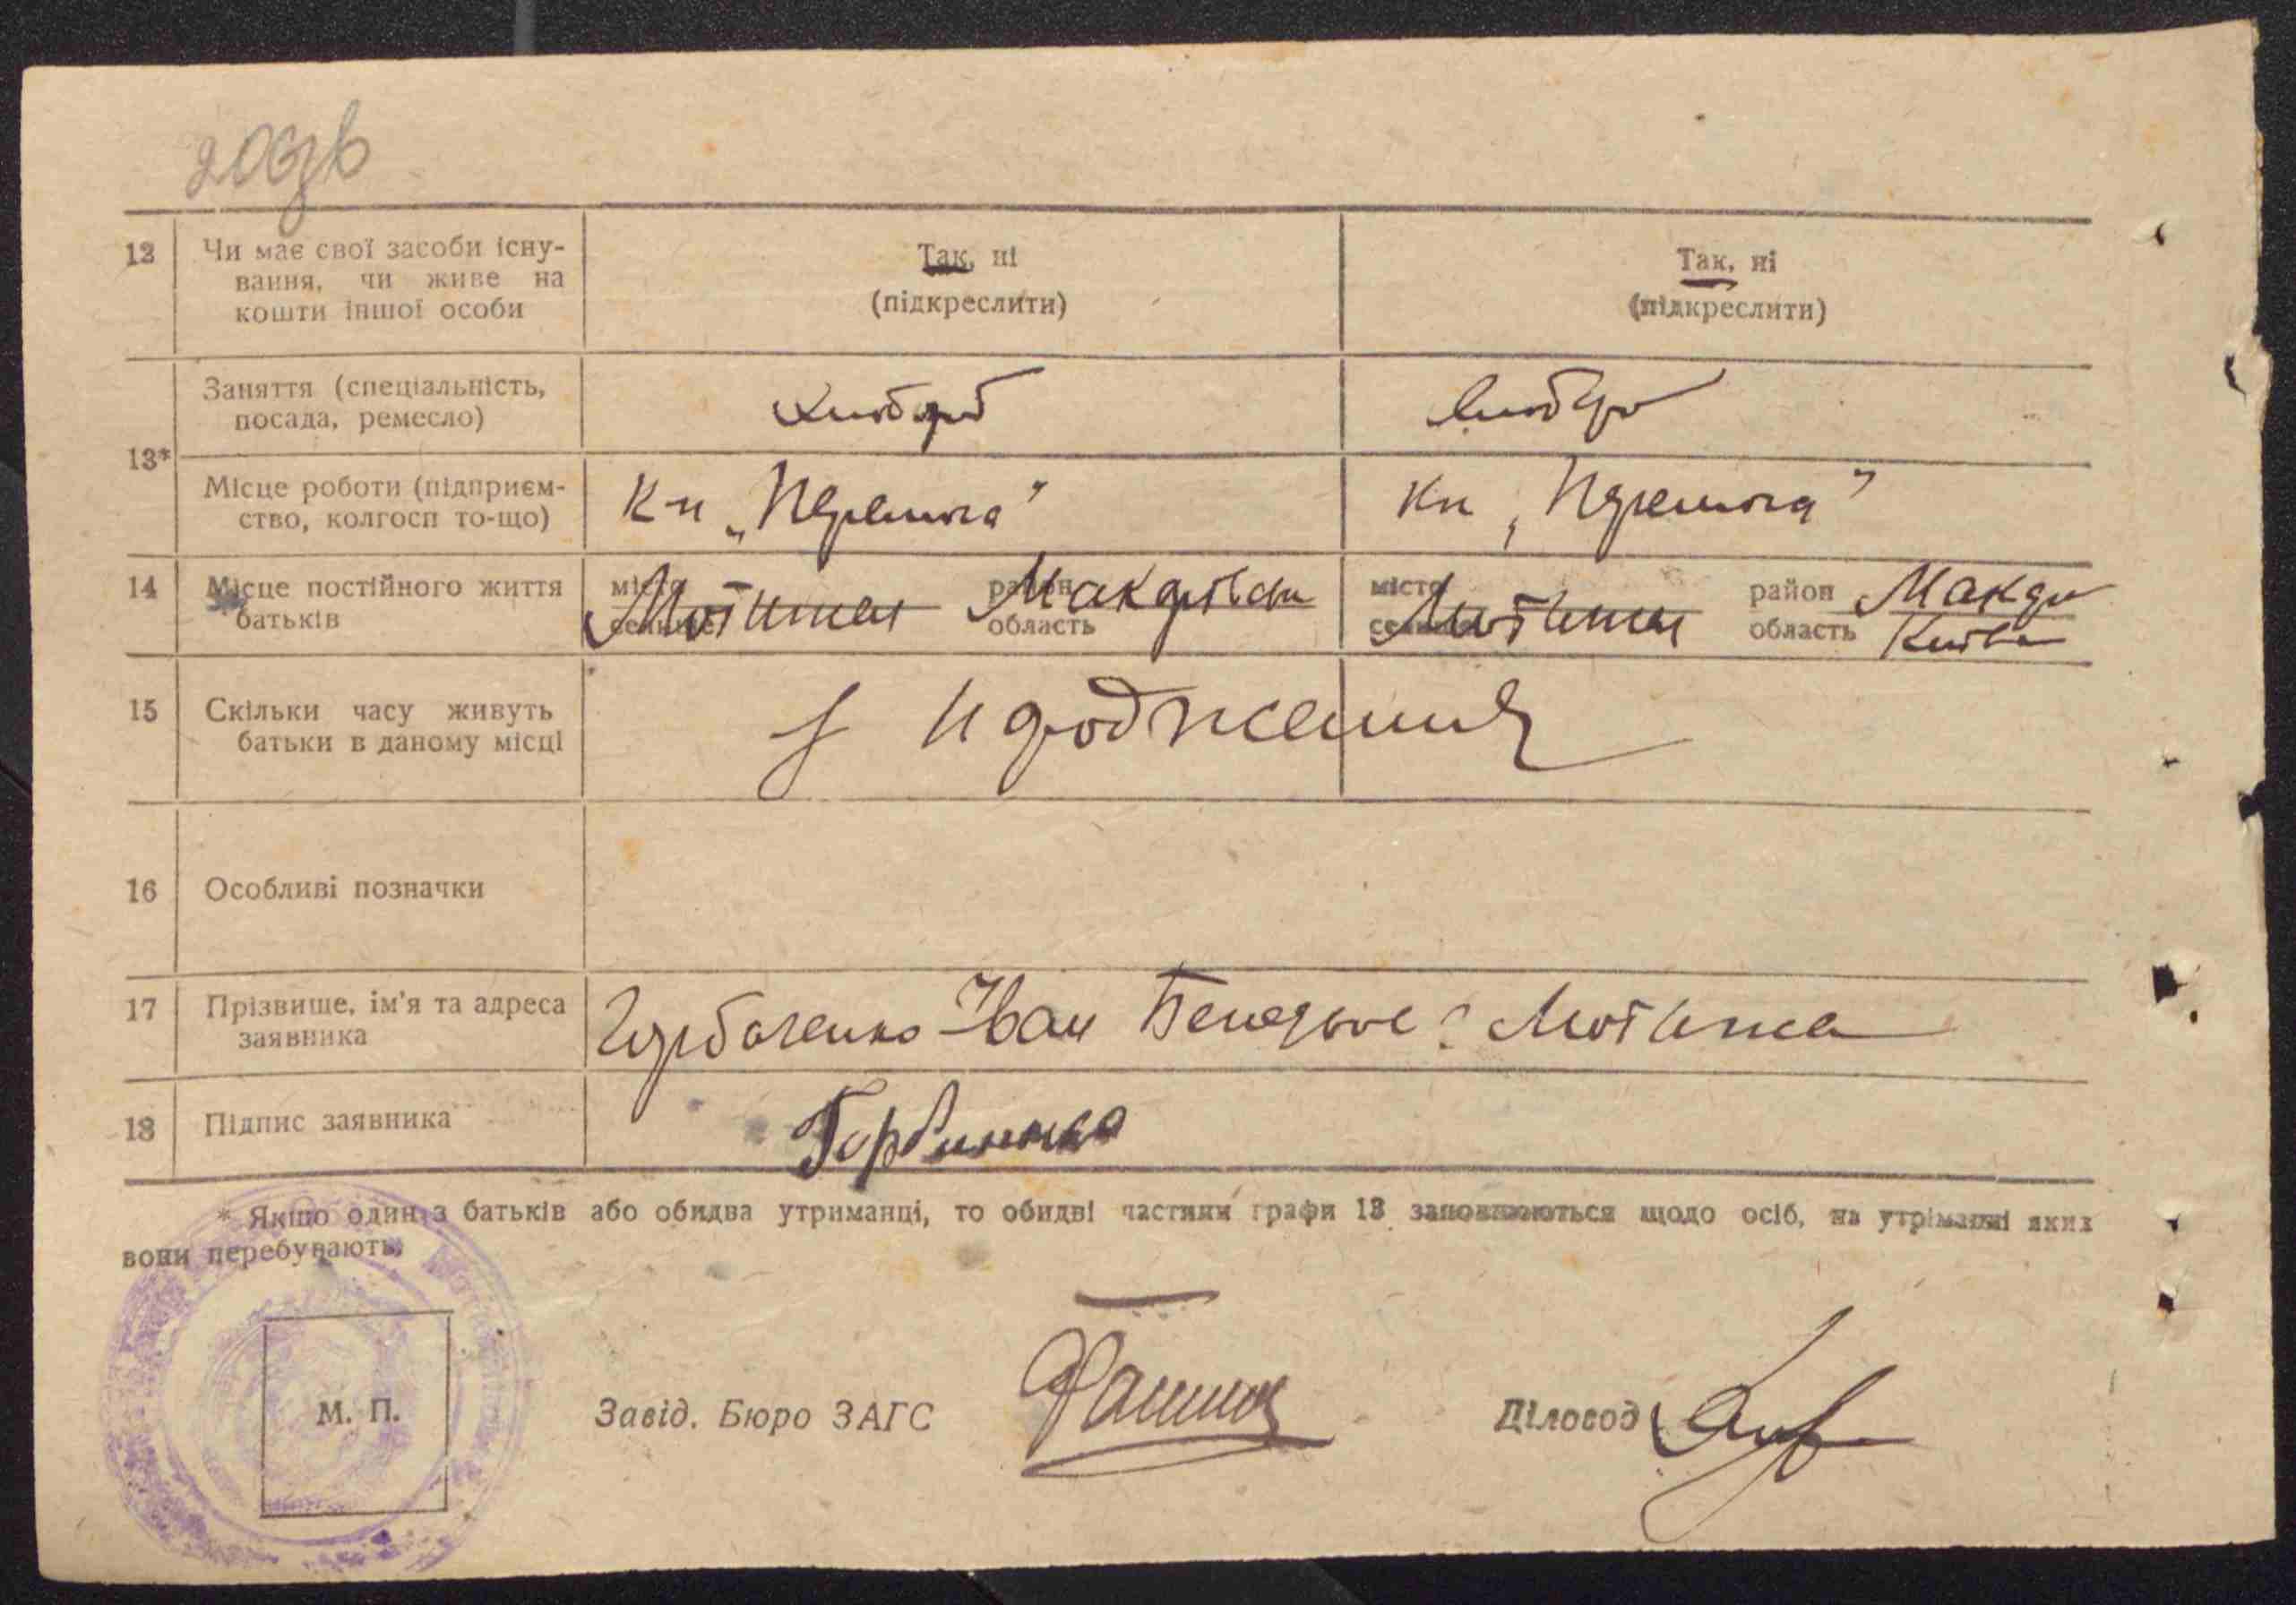 206зв
12 Чи має свої засоби існу- Так, ні Так, ні
вання, чи живе на (підкреслити) (підкреслити)
кошти іншої особи
13* Заняття (спеціальність, хлібороб хлібороб
посада, ремесло)
Місце роботи (підприєм- К-п „Перемога" Кп „Перемога"
ство, колгосп то-що)
14 Місце постійного життя місто Мотижин район Макарівськ місто Мотижин район Макарі
батьків селище область селище область Київ
15 Скільки часу живуть з народження
батьки в даному місці
16 Особливі позначки
17 Прізвище, ім'я та адреса Горбаченко Іван с. Мотижин
заявника
18 Підпис заявника
* Якщо один з батьків або обидва утриманці, то обидві частини графи 13 заповнюються щодо осіб, на утриманні яких
вони перебувають.
М. П. Завід. Бюро ЗАГС Діловод